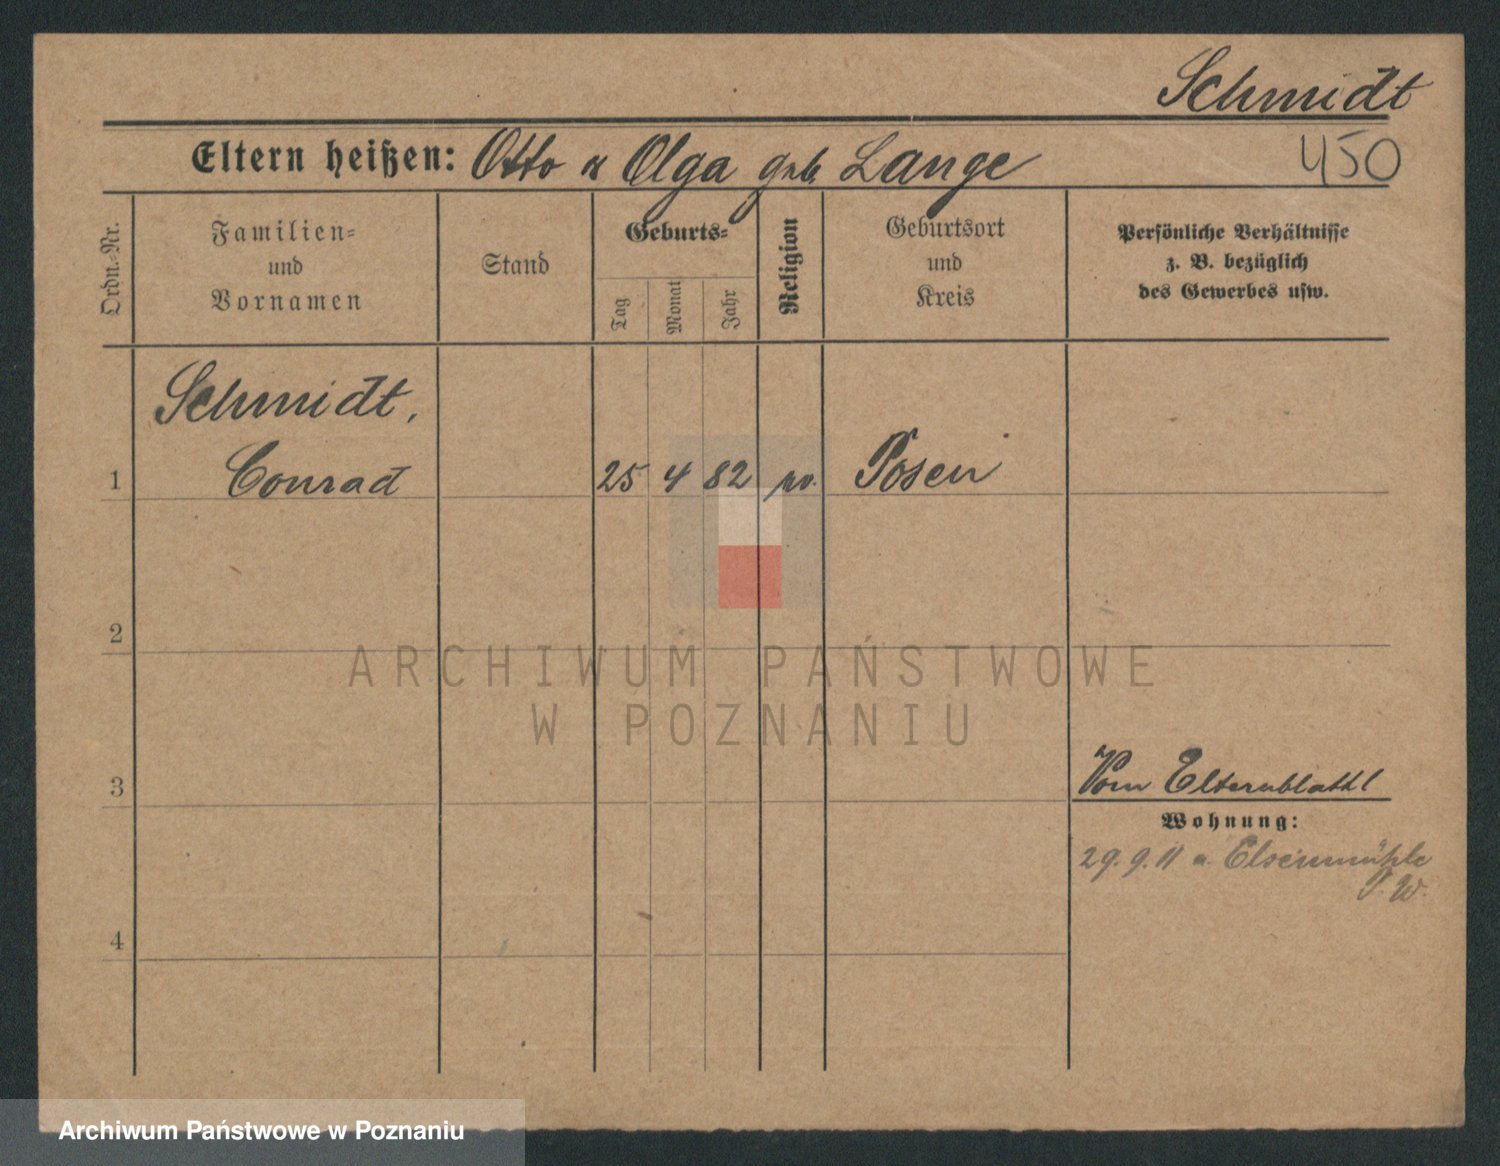 Schmidt
450
Eltern heißen: Otto u Olga geb. Lange
Ordn.-Nr.
Familien-
und
Vornamen
Stand
Geburts-
Tag
Monat
Jahr
Religion
Geburtsort
und
Kreis
Persönliche Verhältnisse
z. B. bezüglich
des Gewerbes usw.
Schmidt,
1 Conrad 25 4 82 Posen
2
ARCHIWUM PAŃSTWOWE
W POZNANIU
3
Vom Elternblatt
Wohnung:
29.9.11 a. Elsenmühle
P. W.
4
Archiwum Państwowe w Poznaniu